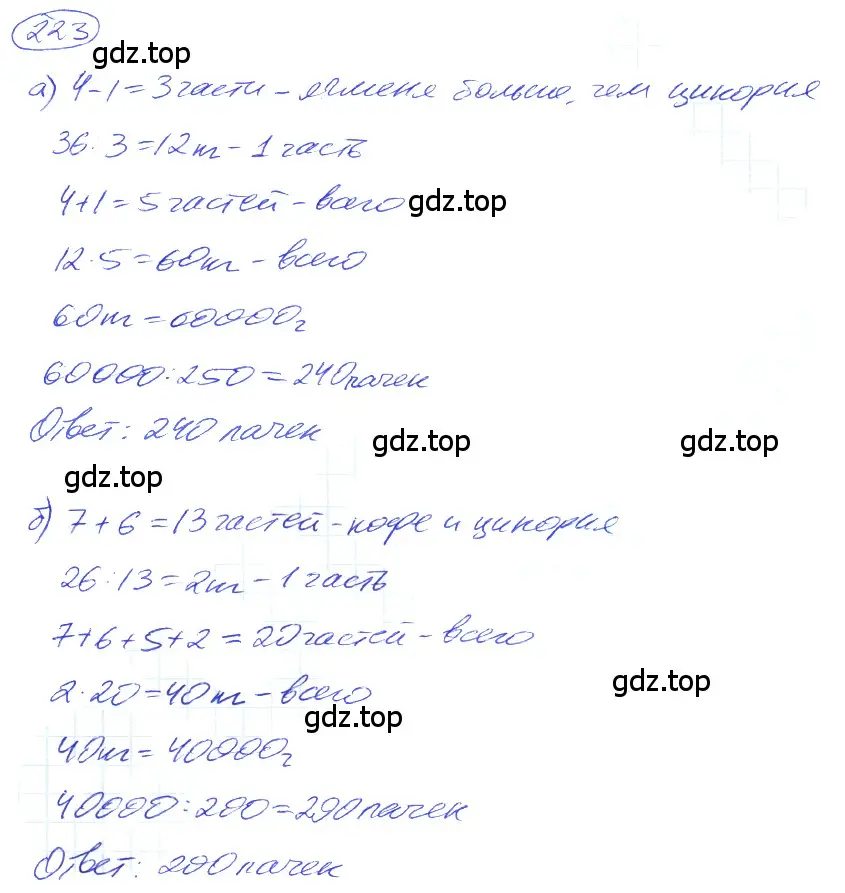 223
gdz.top
а) 4-1=3 части - ячменя больше, чем цикория
36·3=12кг - 1 часть
4+1=5 частей - всего gdz.top
12·5=60кг - всего
60кг=60000г
60000:250=240 пачек
Ответ: 240 пачек
gdz.top gdz.top
gdz.top
б) 7+6=13 частей - кофе и цикория
26:13=2кг - 1 часть
7+6+5+2=20 частей - всего
2·20=40кг - всего
gdz.top
gdz.top
40кг=40000г
40000:200=200 пачек
Ответ: 200 пачек